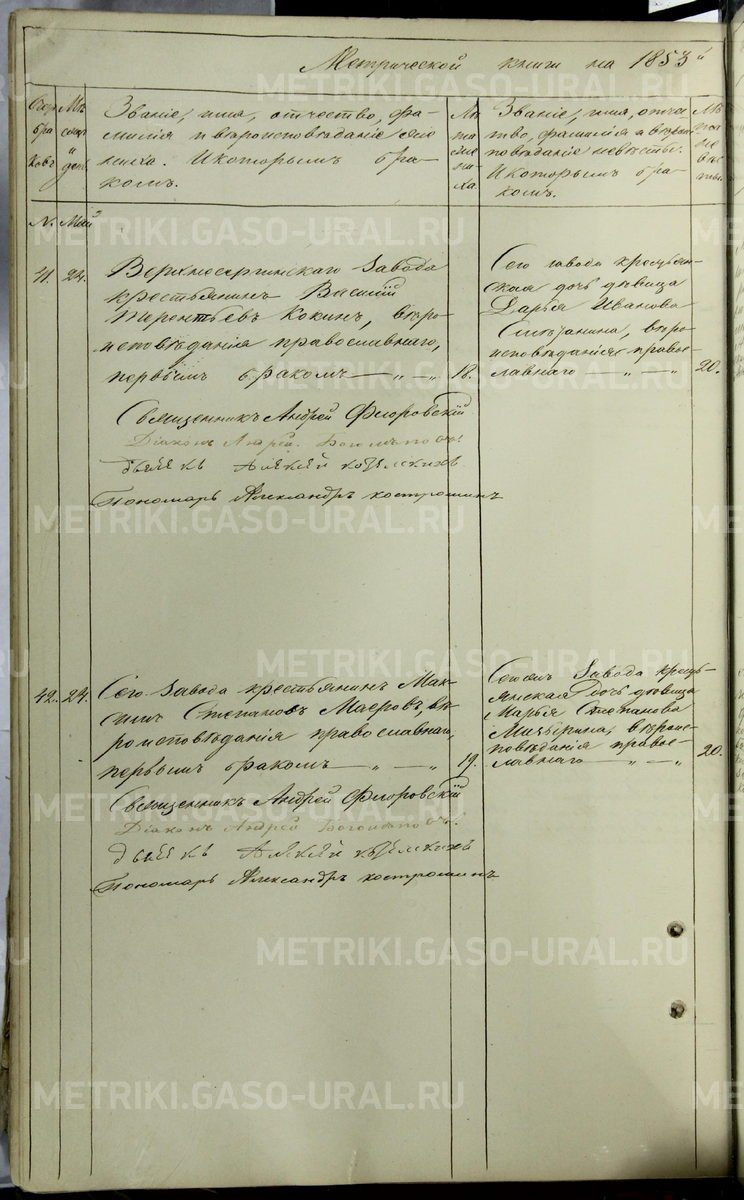 Метрической книги на 1853й
Счет бра ковъ
Мѣ сяцъ и день
Званіе, имя, отчество, фа-
милія и вѣроисповѣданіе же-
ниха. И которымъ бра-
комъ.
Лѣ та же ни ха
Званіе, имя, отче
ство, фамилія и вѣрои
повѣданіе невѣсты.
И которымъ бра-
комъ.
Лѣ та не вѣс ты.
№. Май
41. 24.
Верхнесергинскаго завода
крестьянинъ Василій
Терентьевъ Кокинъ, вѣро-
исповѣданія православнаго,
первымъ бракомъ — „ — „
18.
Сего завода крестьян-
ская дочь дѣвица
Дарья Иванова
вѣро-
исповѣданія правос-
лавнаго — „ — „
20.
Священникъ Андрей Флоровскій
Діаконъ Андрей
дьячекъ Алексѣй
Пономарь Александръ Костроминъ
42. 24.
Сего завода крестьянинъ Мак-
симъ Степановъ Маеровъ, вѣ
роисповѣданія православнаго,
первымъ бракомъ — „ — „
19.
завода кресть-
янская дочь дѣвица
Марья Степанова
вѣроис-
повѣданія правос-
лавнаго — „ — „
20.
Священникъ Андрей Флоровскій
Діаконъ Андрей
дьячекъ Алексѣй
Пономарь Александръ Костроминъ
METRIKI.GASO-URAL.RU